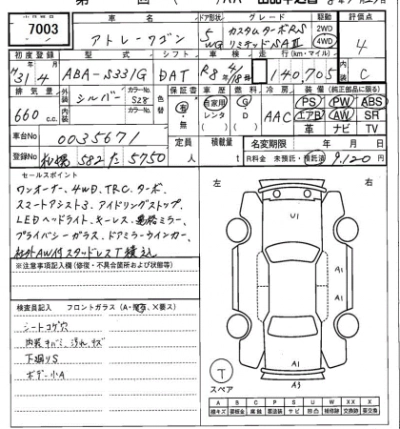 7003
車名 ドア形状 グレード 駆動 評価点
アトレーワゴン 5 WG カスタムターボRS リミテッドSAⅢ 2WD 4WD 4
初度登録 型式 シフト 車検 走行(km・マイル) 内装
31/4 ABA-S331G DAT R8年4/18 140,705 C
排気量 外装 カラーNo. 色替 保証書 車歴 燃料 冷房 装備(純正部品に限る)
660 c.c. シルバー S28 有・無 自家用 レンタ G D AAC PS PW ABS
内装 カラーNo. エアB AW SR
革 ナビ TV
車台No 0035671 定員 積載量 名変期限 年 月 日
登録No 582 た 5750 人 t R料金 未預託・預託済 9,120円
セールスポイント
ワンオーナー、4WD、TRC、ターボ、
スマートアシスト3、アイドリングストップ、
LEDヘッドライト、キーレス、電格ミラー、
プライバシーガラス、ドアミラーウインカー、
社外AW付スタッドレスT積込
※注意事項記入欄(修復・不具合箇所および状態等)
検査員記入 フロントガラス(A・飛石、X要ス)
シートコゲ穴
内装キバミ、汚れ、キズ
下廻りS
ボデー小A
左 右
U1
A1
A1
A3
T
スペア
A B C P S U W X XX